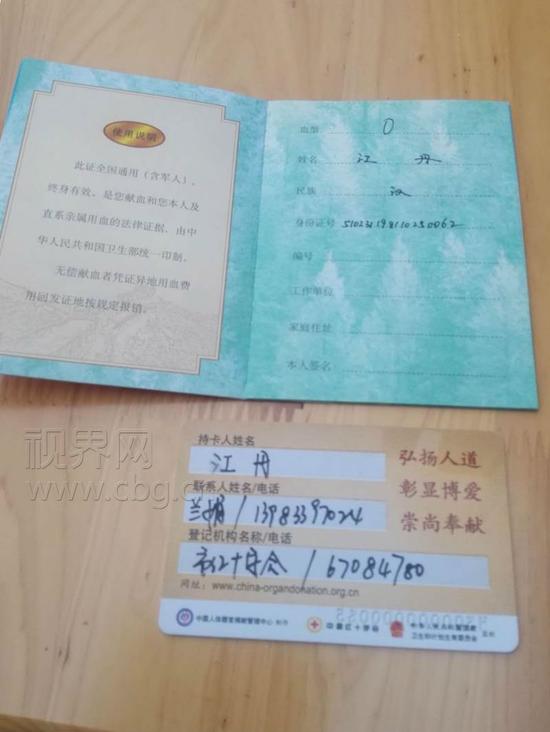 使用说明
此证全国通用（含军人），
终身有效，是您献血和您本人及
直系亲属用血的法律证据，由中
华人民共和国卫生部统一印制。
无偿献血者凭证异地用血费
用回发证地按规定报销。
血型 O
姓名 江丹
民族 汉
身份证号
编号
工作单位
家庭住址
本人签名
视界网
www.cbg.cn
持卡人姓名
江丹
联系人姓名/电话
登记机构名称/电话
红十字会/67084780
网址：www.china-organdonation.org.cn
弘扬人道
彰显博爱
崇尚奉献
中国人体器官捐献管理中心 制作
中国红十字会
监制